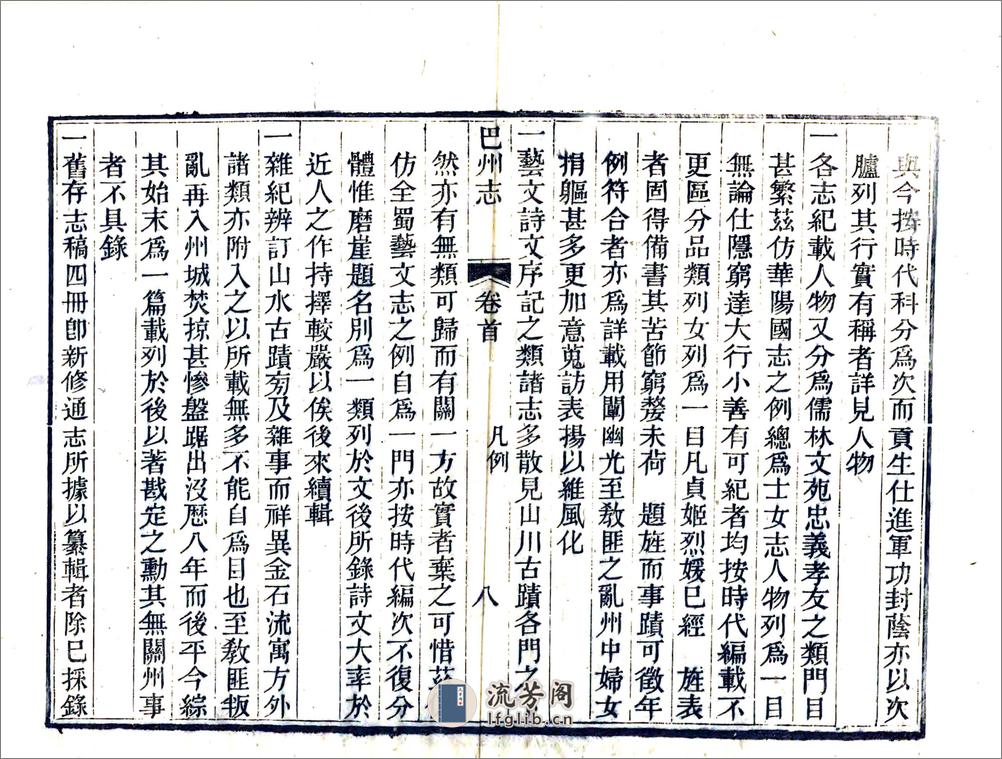 與今按時代科分爲次而貢生仕進軍功封蔭亦以次
臚列其行實有稱者詳見人物
一各志紀載人物又分爲儒林文苑忠義孝友之類門目
甚繁茲仿華陽國志之例總爲士女志人物列爲一目
無論仕隱窮達大行小善有可紀者均按時代編載不
更區分品類列女列爲一目凡貞姬烈媛已經 旌表
者固得備書其苦節窮嫠未荷 題旌而事蹟可徵年
例符合者亦爲詳載用闡幽光至教匪之亂州中婦女
捐軀甚多更加意蒐訪表揚以維風化
一藝文詩文序記之類諸志多散見山川古蹟各門之
巴州志 卷首 凡例 八
然亦有無類可歸而有關一方故實者棄之可惜茲
仿全蜀藝文志之例自爲一門亦按時代編次不復分
體惟磨崖題名別爲一類列於文後所錄詩文大率於
近人之作持擇較嚴以俟後來續輯
一雜紀辨訂山水古蹟旁及雜事而祥異金石流寓方外
諸類亦附入之以所載無多不能自爲目也至教匪叛
亂再入州城焚掠甚慘盤踞出沒歷八年而後平今綜
其始末爲一篇載列於後以著戡定之勳其無關州事
者不具錄
一舊存志稿四冊卽新修通志所據以纂輯者除已採錄
流芳阁
lfglib.cn